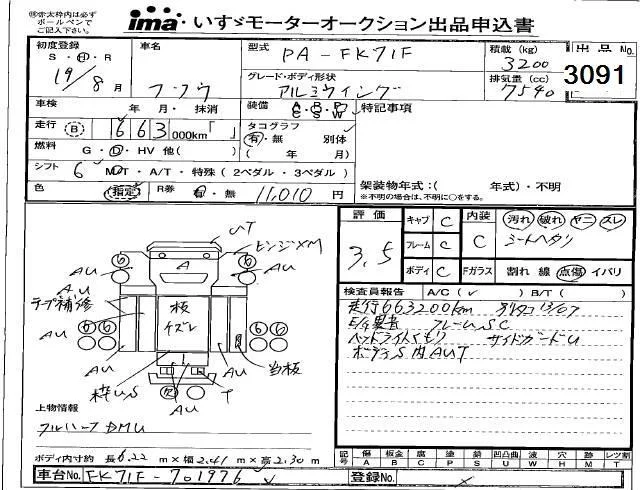 ※赤太枠内は必ず
ボールペンで
ご記入下さい。
ima いすゞモーターオークション出品申込書
初度登録
S・H・R
19/8月
車名
フソウ
型式
PA-FK71F
積載(kg)
3200
出品No.
3091
グレード・ボディ形状
アルミウイング
排気量(cc)
7540
車検
年・月・抹消
装備
A・B・P
C・S・W
特記事項
走行
B
1663000km「 」
タコグラフ
有・無 別体
( 年 月)
燃料
G・D・HV 他( )
シフト
6 M/T・A/T・特殊(2ペダル・3ペダル)
架装物年式:( 年式)・不明
※不明の場合は、不明に○をする。
色
(指定)
R券
有・無
11,010円
評価
3.5
キャブ C
フレーム C
ボディ C
内装
C
汚れ 破れ ヤニ スレ
シートヘタリ
Fガラス
割れ 線 点傷 イバリ
検査員報告
A/C(✓) B/T( )
走行663200km 別タコ13/07
E/G異音 フレームSC
ヘッドライトくもり サイドガードU
ボディS内AUT
UT
ピンジXM
A
6
6
AU
AU
AU
テープ補修
板
ｲズレ
6 6
6 6
AU
AU
当板
枠US
AU
T
上物情報
フルハーフ DMU
ボディ内寸約 長6.22m×幅2.41m×高2.30m
記号
傷 A
板金 B
腐 C
塗 P
錆 S
凹凸曲 U
波 W
穴 H
跡 M
レツ割 T
車台No.
FK71F-701976
登録No.